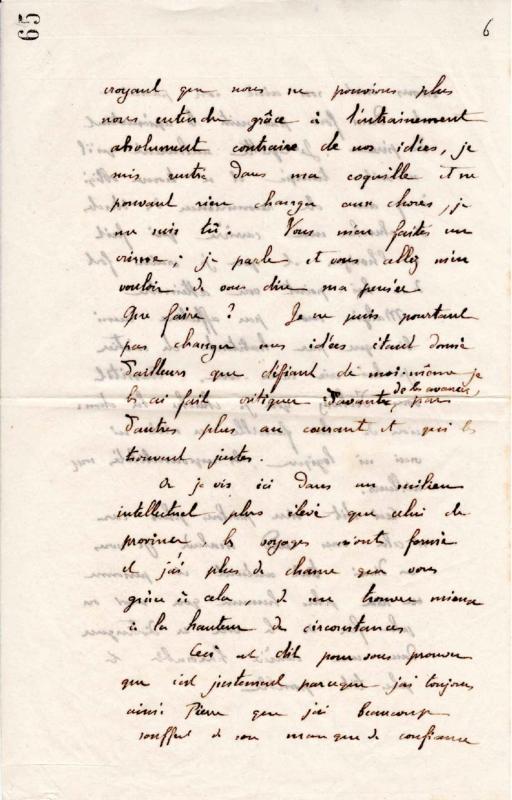 65
6
croyant que nous ne pouvions plus
nous entendre grâce à l'entrainement
absolument contraire de nos idées, je
suis entré dans ma coquille et ne
pouvant rien changer aux choses, je
me suis tû. Vous m'en faites un
crime; je parle et vous allez m'en
vouloir de vous dire ma pensée
Que faire ? Je ne puis pourtant
pas changer mes idées étant donné
d'ailleurs que défiant de moi-même je
les ai fait critiquer d'avant de les avancer, par
d'autres plus au courant et qui les
trouvent justes.
Or je vis ici dans un milieu
intellectuel plus élevé que celui de
province, les voyages m'ont formé
et j'ai plus de chance que vous
grâce à cela, de me trouver mieux
à la hauteur des circonstances
Ceci est dit pour vous prouver
que c'est justement parceque j'ai toujours
aimé Pierre que j'ai beaucoup
souffert de son manque de confiance